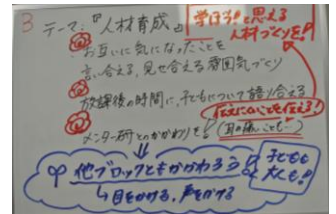 3
テーマ:『人材育成』
学ぼう!と思える
人材づくりを!
お互いに気になったことを
言い合える、見せ合える雰囲気づくり
放課後の時間に、子どもについて語り合える
伝えにくいことを伝える!
(耳の痛いことも…)
メンター研とのかかわりを!
他ブロックともかかわろう
↳目をかける、声をかける
子どもも
大人も!